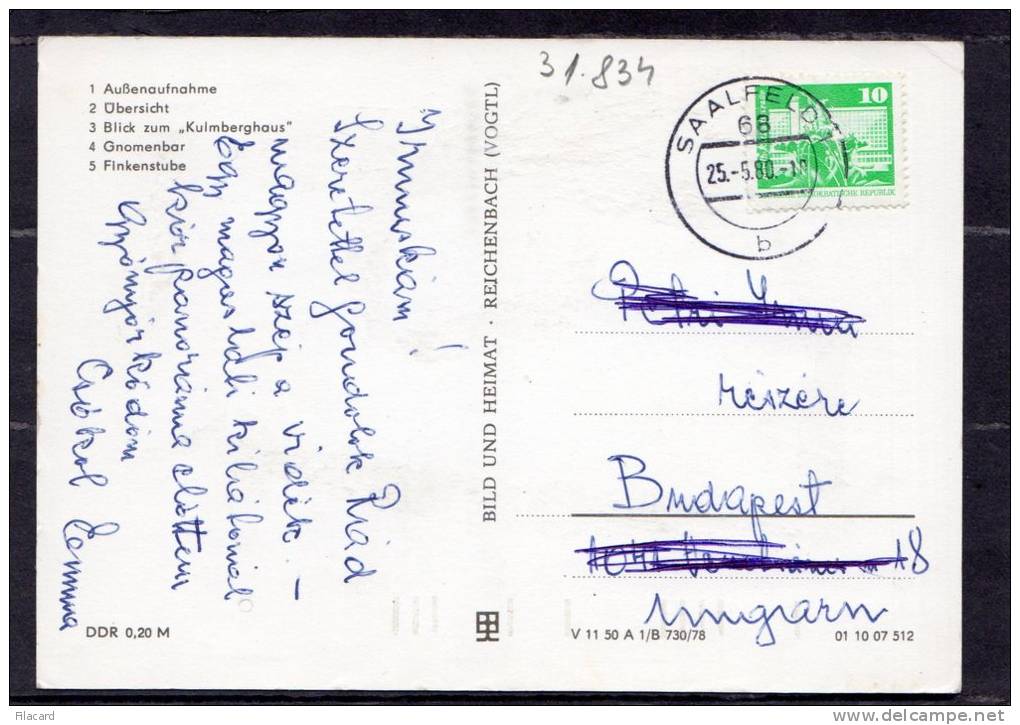 31.834
1 Außenaufnahme
2 Übersicht
3 Blick zum „Kulmberghaus"
4 Gnomenbar
5 Finkenstube
Irmuskám!
Szeretettel Gondolok Rád
nagyon szép a vidék. –
Egy magaslati kilátónál
kör panoráma előttem
Gyönyörködöm
Csókol
DDR 0,20 M
BILD UND HEIMAT · REICHENBACH (VOGTL)
SAALFELD 1
68
25.-5.80.-
b
10
DEMOKRATISCHE REPUBLIK
részére
Budapest
Ungarn
V 11 50 A 1/B 730/78
01 10 07 512
Filacard
www.delcampe.net